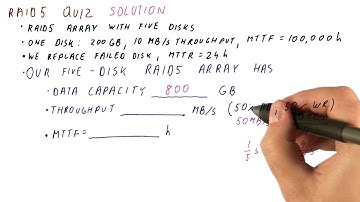 RAID5 QUIZ SOLUTION
• RAID5 ARRAY WITH FIVE DISKS
• ONE DISK: 200GB, 10 MB/S THROUGHPUT, MTTF = 100,000h
• WE REPLACE FAILED DISK, MTTR = 24h
• OUR FIVE-DISK RAID5 ARRAY HAS
• DATA CAPACITY 800 GB
• THROUGHPUT MB/S (50% , 50% WR)
50MB/
1/5 S
• MTTF = h